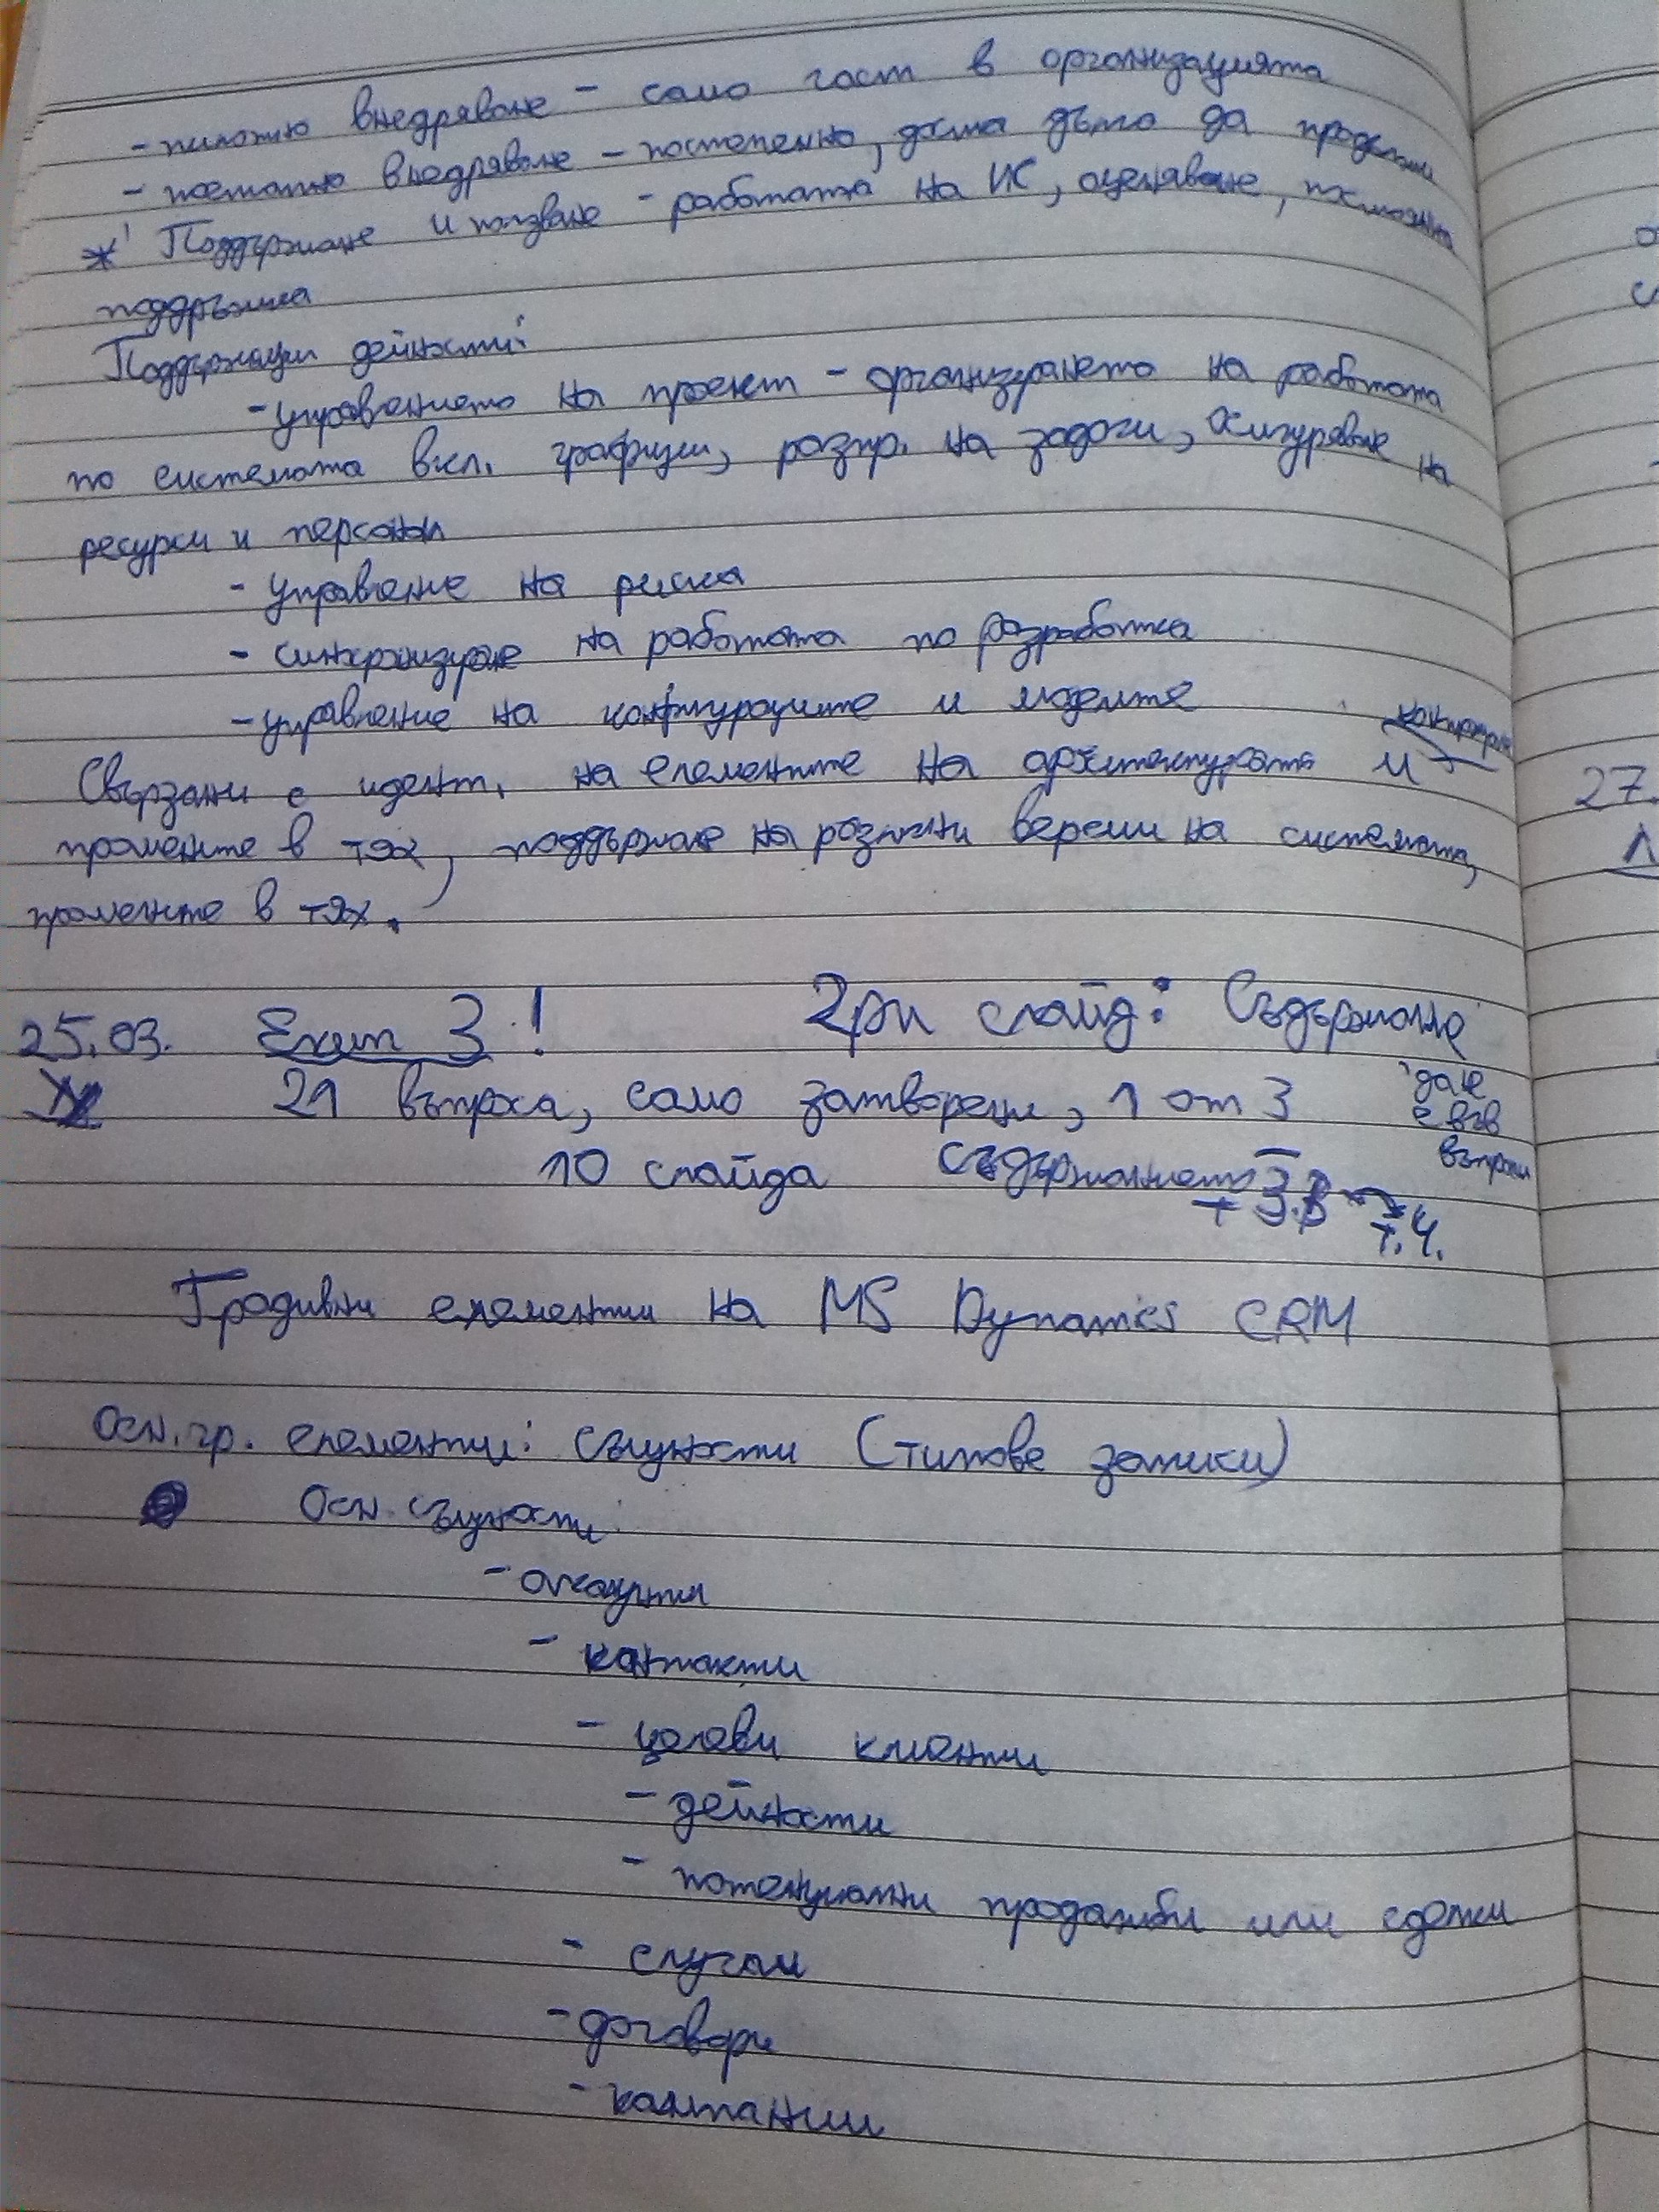 - пилотно внедряване - само част в организацията
- поетапно внедряване - постепенно, доста дълго да продължи
* Поддържане и ползване - работата на ИС, оценяване, постоянна
поддръжка
Поддържащи дейности:
- управлението на проект - организирането на работата
по системата вкл. графици, разпр. на задачи, осигуряване на
ресурси и персонал
- управление на риска
- синхронизиране на работата по разработка
- управление на конфигурациите и моделите
Свързани с идент. на елементите на архитектурата и контролиране
промените в тях, поддържане на различни версии на системата,
промените в тях.
25.03. Екип 3! 2ри слайд: Съдържание
21 въпроса, само затворени, 1 от 3 да не е във въпроси
10 слайда съдържанието
т 3.3 т.4.
Градивни елементи на MS Dynamics CRM
Осн. гр. елементи: същности (типове записи)
Осн. същности:
- акаунти
- контакти
- целеви клиенти
- дейности
- потенциални продажби или сделки
- случаи
- договори
- кампании
27.